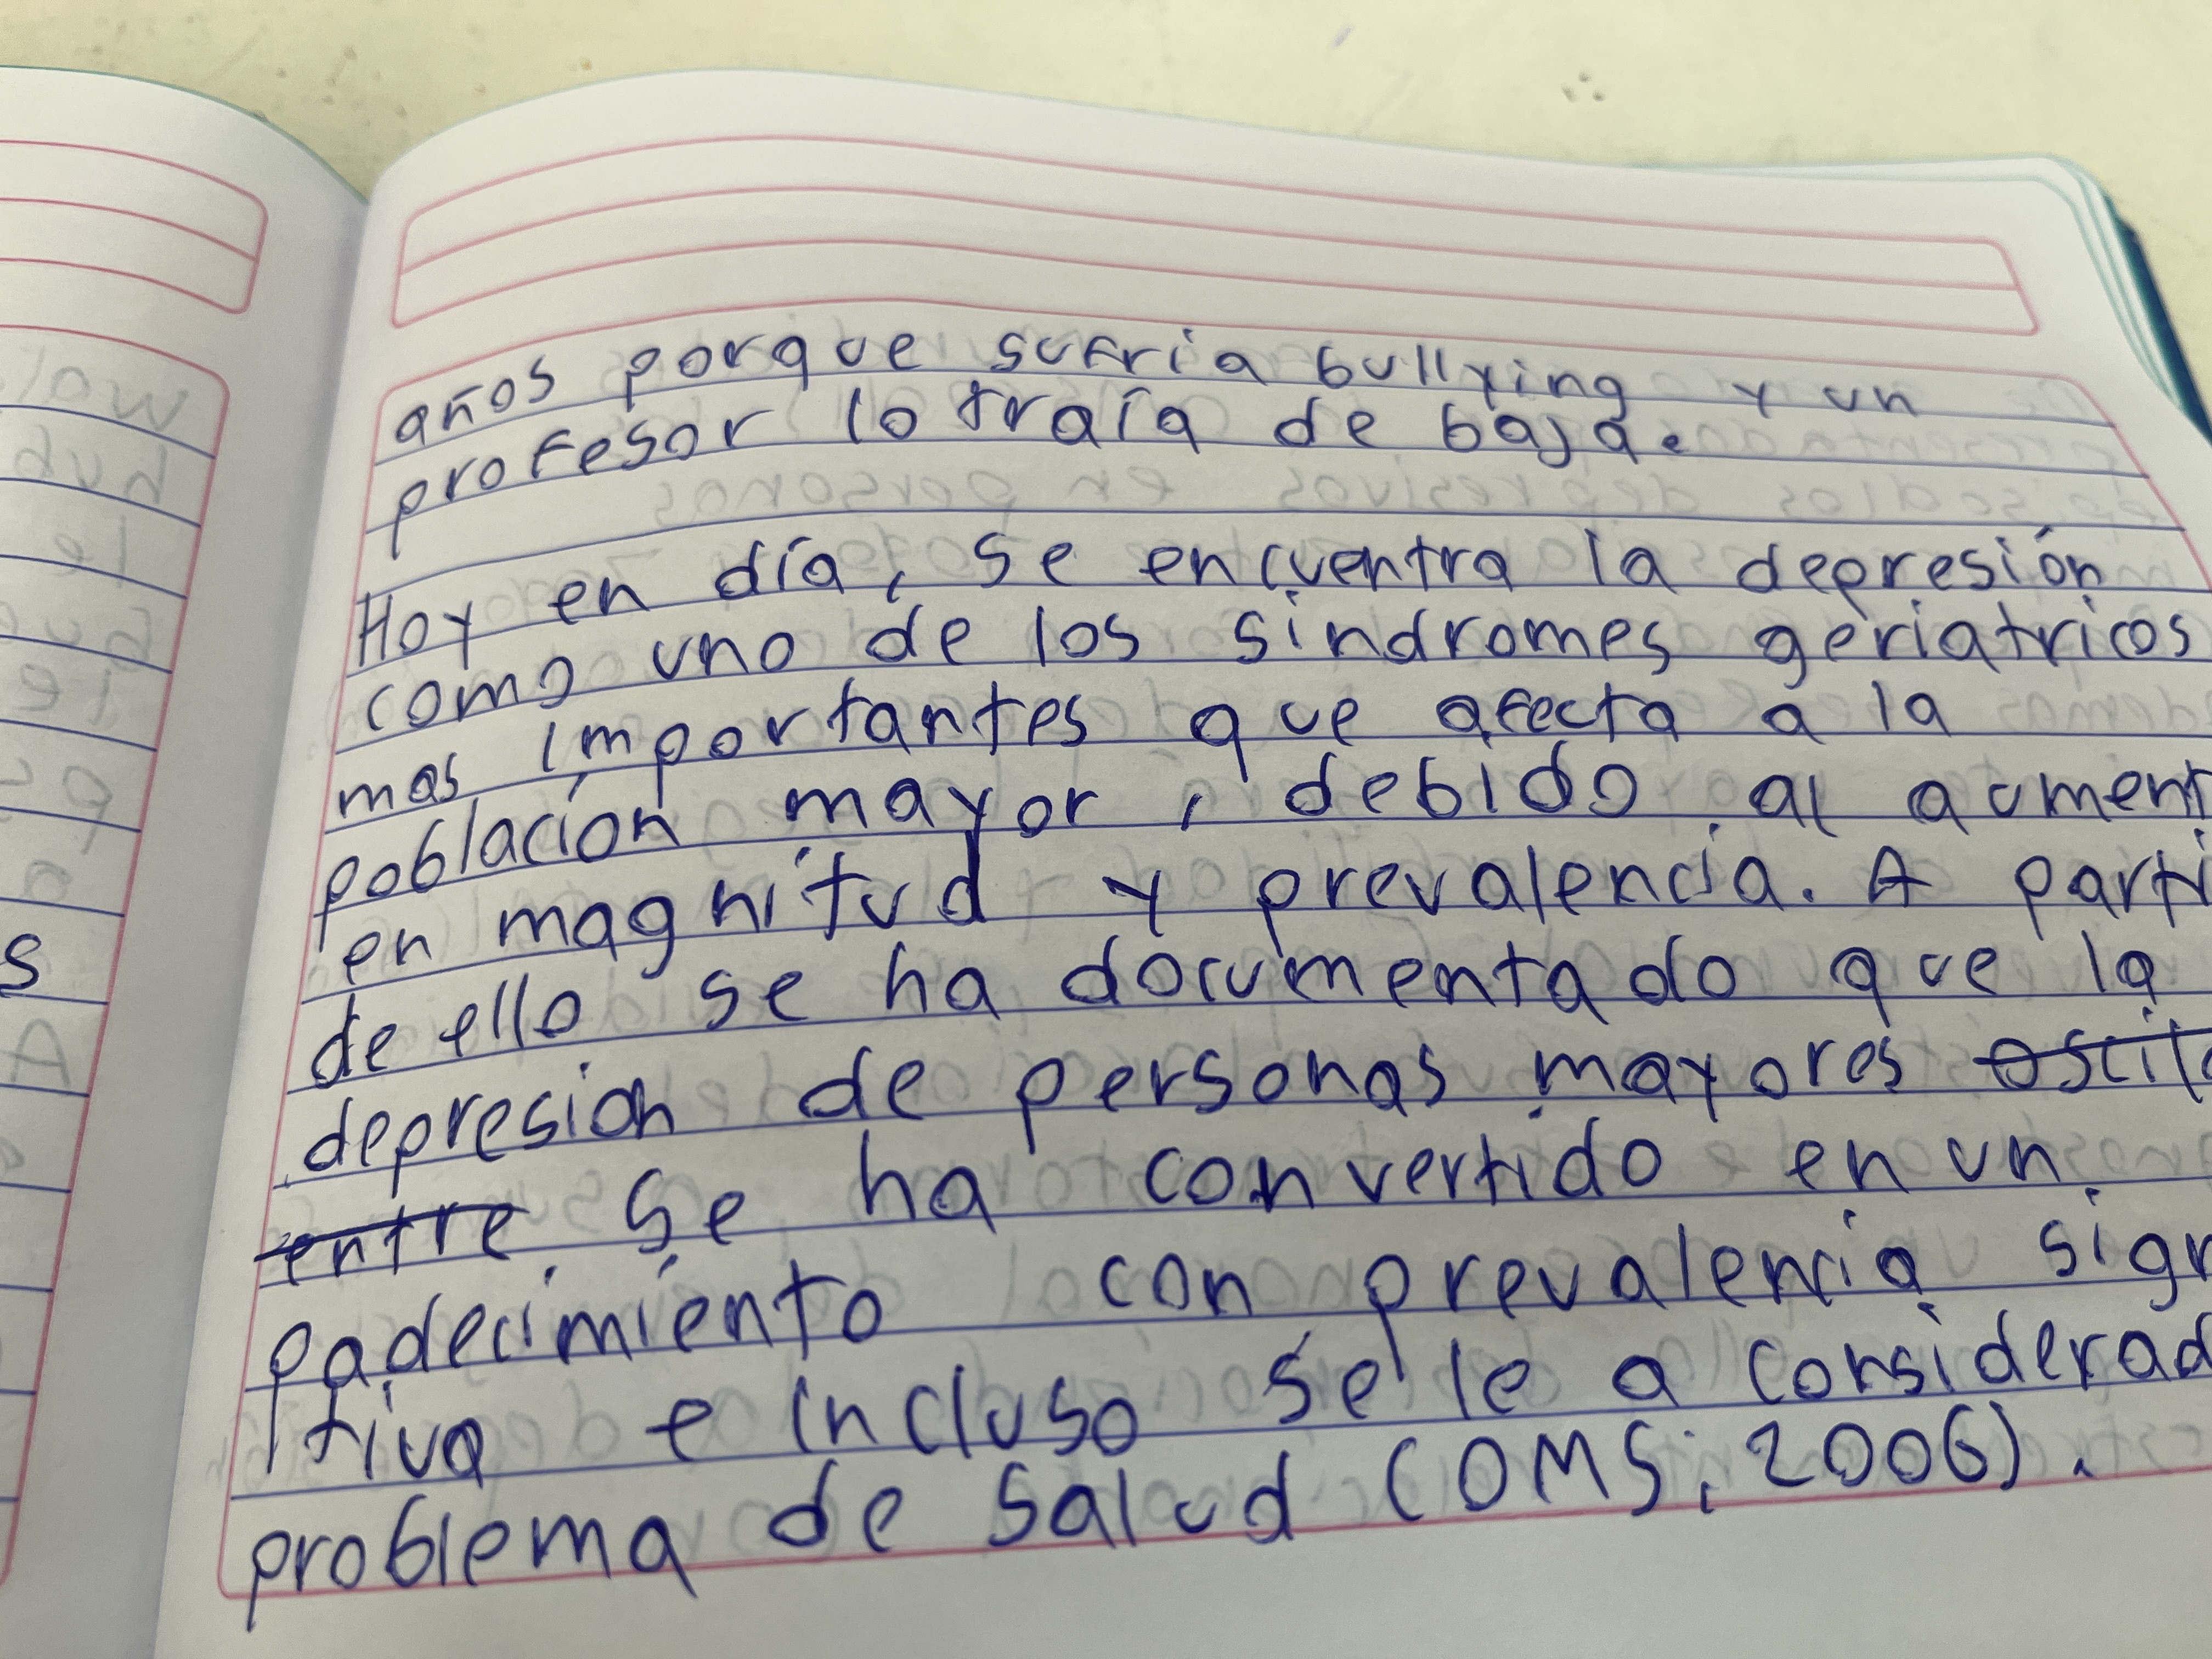 años porque sufria bullying y un
profesor lo traía de baja.
Hoy en día, se encuentra la depresión
como uno de los sindromes geriatricos
mas importantes que afecta a la
población mayor, debido al aument
en magnitud y prevalencia. A parti
de ello se ha documentado que la
depresion de personas mayores oscila
entre se ha convertido en un
padecimiento con prevalencia sign
itiva e incluso se le a considerad
problema de salud (OMS; 2006).
s